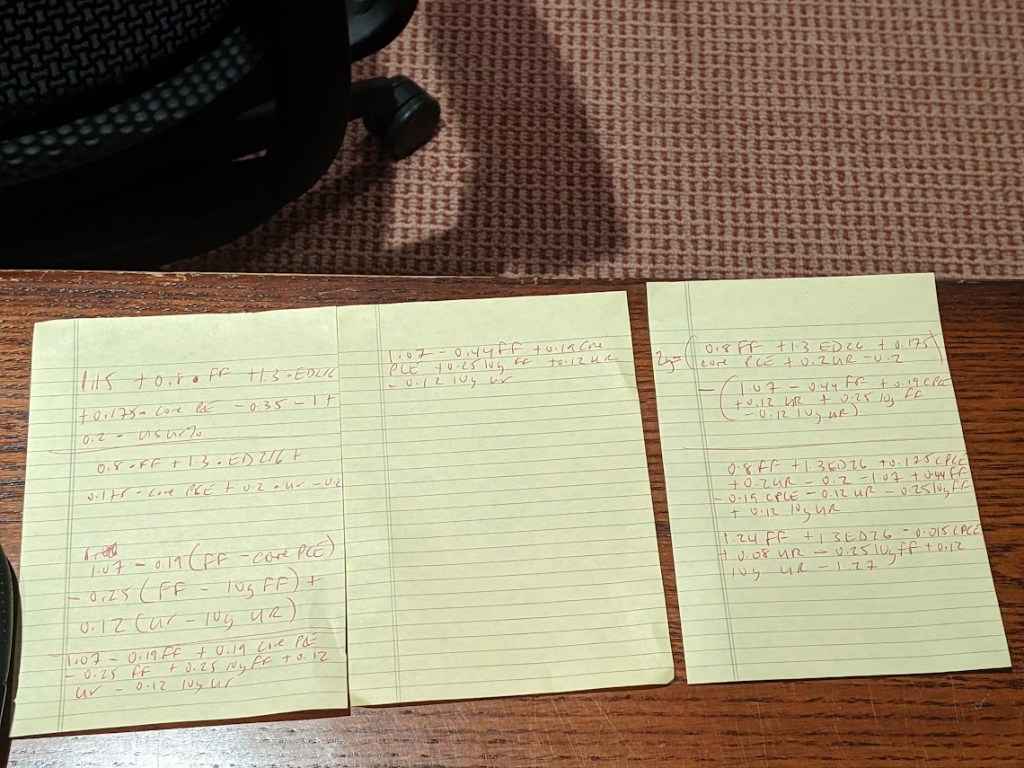 1.15 + 0.8 • FF + 1.3 • ED226
+ 0.175 • core PCE - 0.35 - 1 +
0.2 • usur%
0.8 • FF + 1.3 • ED226 +
0.175 • core PCE + 0.2 • ur - 0.2
1.07 - 0.19 (FF - core PCE)
- 0.25 (FF - 10y FF) +
0.12 (ur - 10y UR)
1.07 - 0.19 FF + 0.19 core PCE
- 0.25 FF + 0.25 10y FF + 0.12
ur - 0.12 10y ur
1.07 - 0.44 FF + 0.19 core
PCE + 0.25 10y FF + 0.12 UR
- 0.12 10y ur
2y= (0.8 FF + 1.3 ED26 + 0.175
core PCE + 0.2 UR - 0.2)
- (1.07 - 0.44 FF + 0.19 CPCE
+ 0.12 UR + 0.25 10y FF
- 0.12 10y UR)
0.8 FF + 1.3 ED26 + 0.175 CPCE
+ 0.2 UR - 0.2 - 1.07 + 0.44 FF
- 0.19 CPCE - 0.12 UR - 0.25 10y FF
+ 0.12 10y UR
1.24 FF + 1.3 ED26 - 0.015 CPCE
+ 0.08 UR - 0.25 10y FF + 0.12
10y UR - 1.27